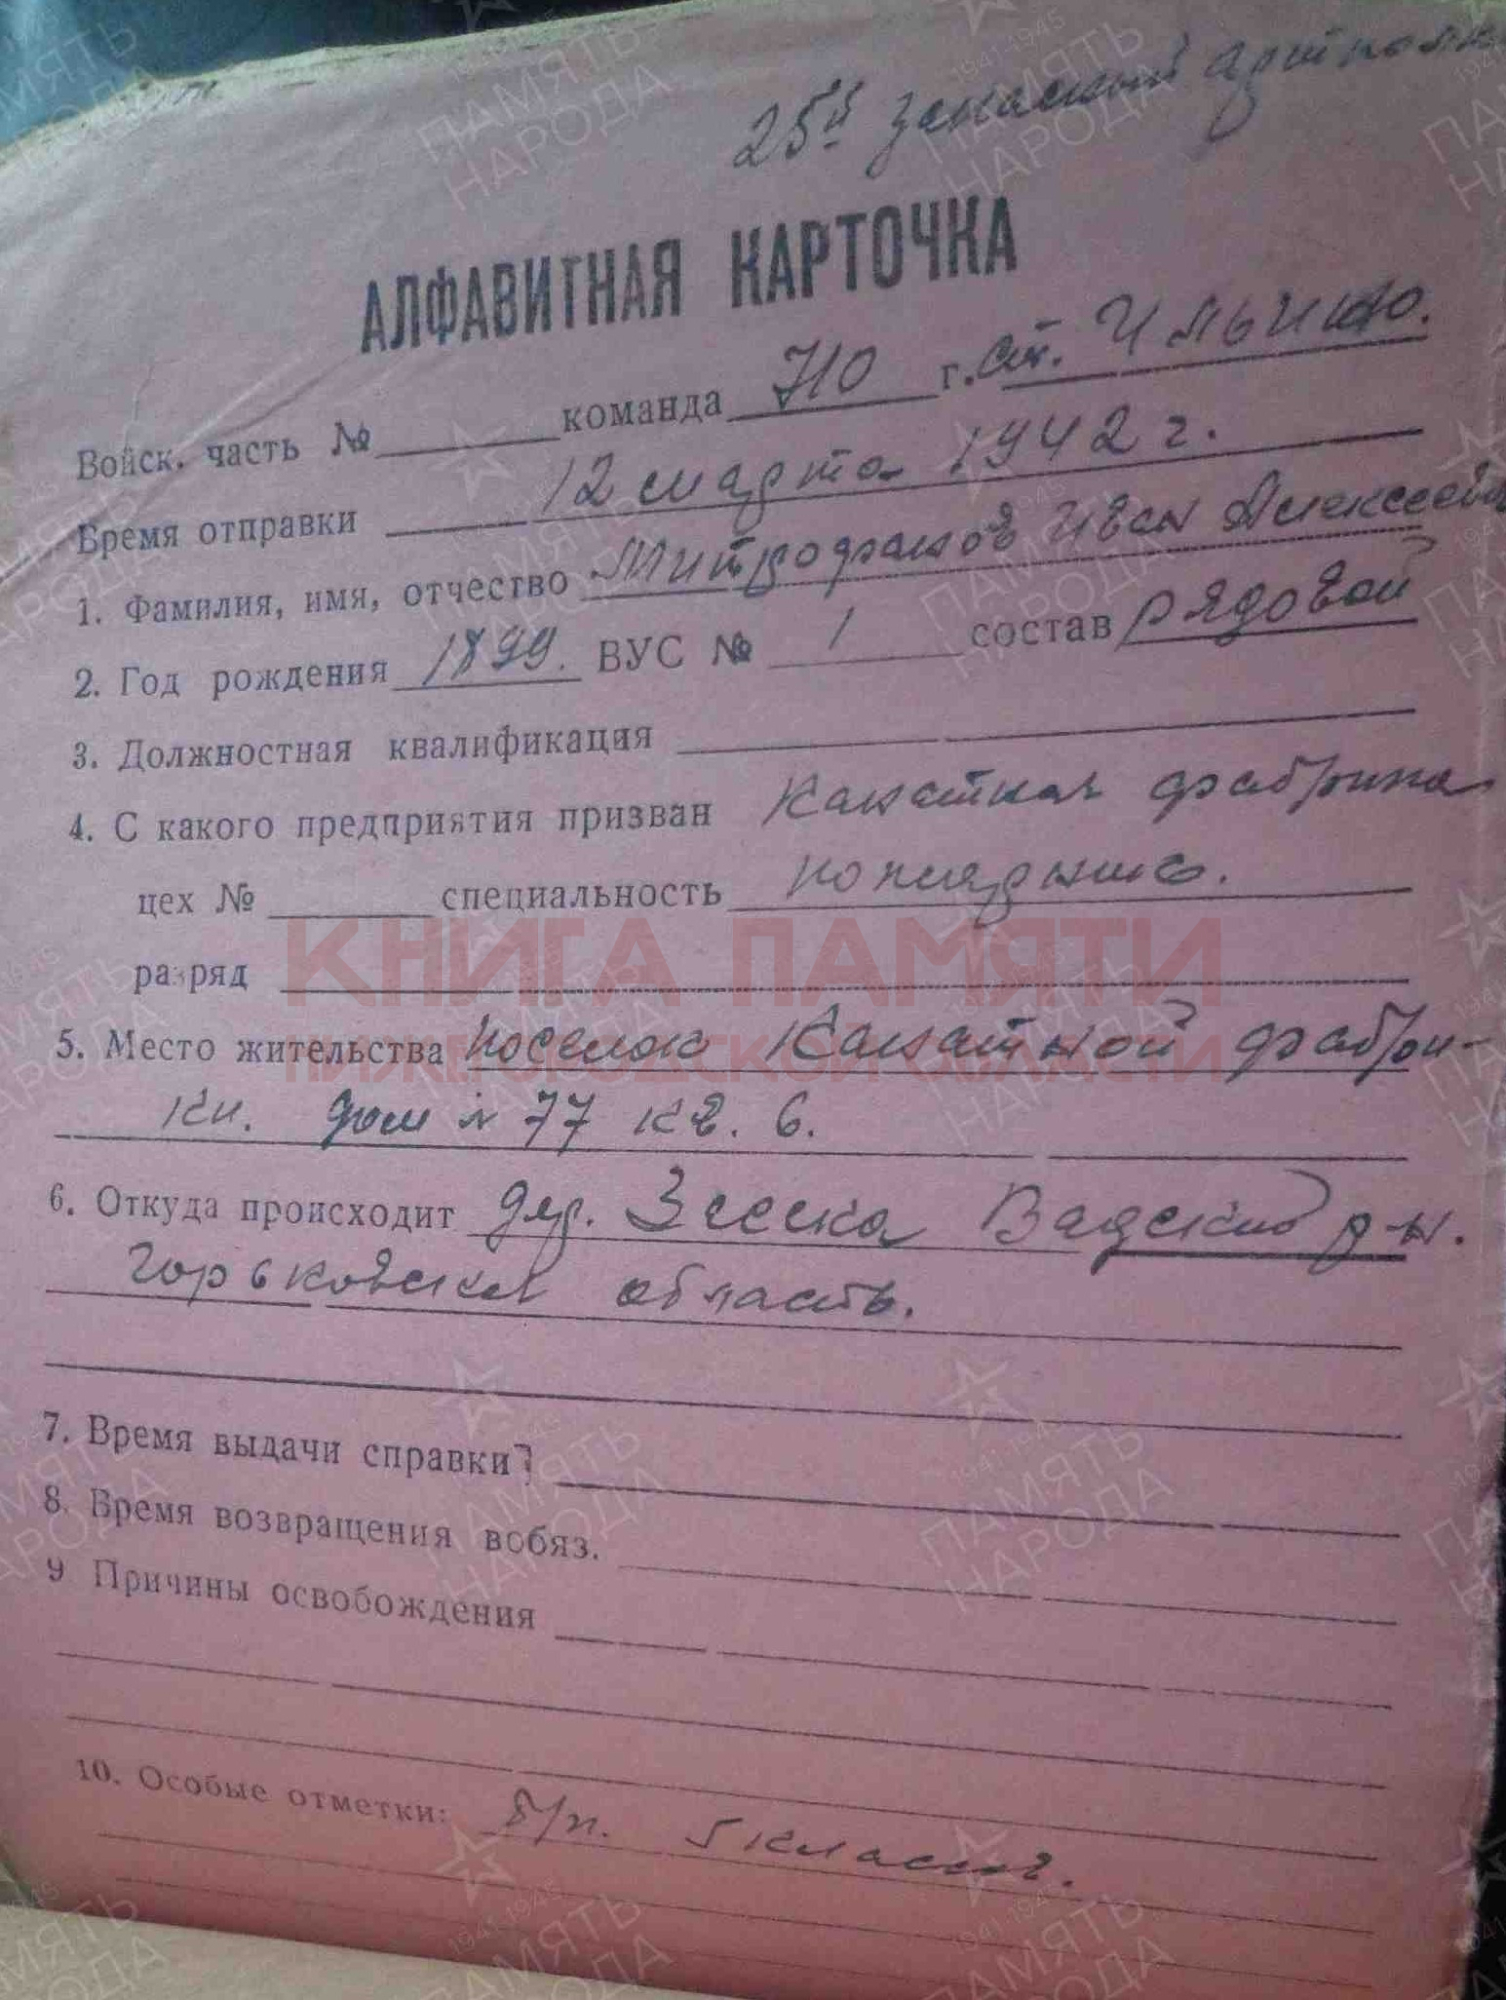 25й запасный артполк
АЛФАВИТНАЯ КАРТОЧКА
Войск. часть № команда 710 г. ст. Ильино.
Время отправки 12 марта 1942 г.
1. Фамилия, имя, отчество Митрофанов Иван Алексеев
2. Год рождения 1899. ВУС № 1 состав рядовой
3. Должностная квалификация
4. С какого предприятия призван Канатная фабрика
цех № специальность
разряд
КНИГА ПАМЯТИ
НИЖЕГОРОДСКОЙ ОБЛАСТИ
5. Место жительства поселок Канатной фабри-
ки. дом № 77 кв. 6.
6. Откуда происходит дер. Вадский р-н.
Горьковская область.
7. Время выдачи справки
8. Время возвращения вобяз.
9 Причины освобождения
10. Особые отметки: б/п. 5 классов.
1941-1945
ПАМЯТЬ
НАРОДА